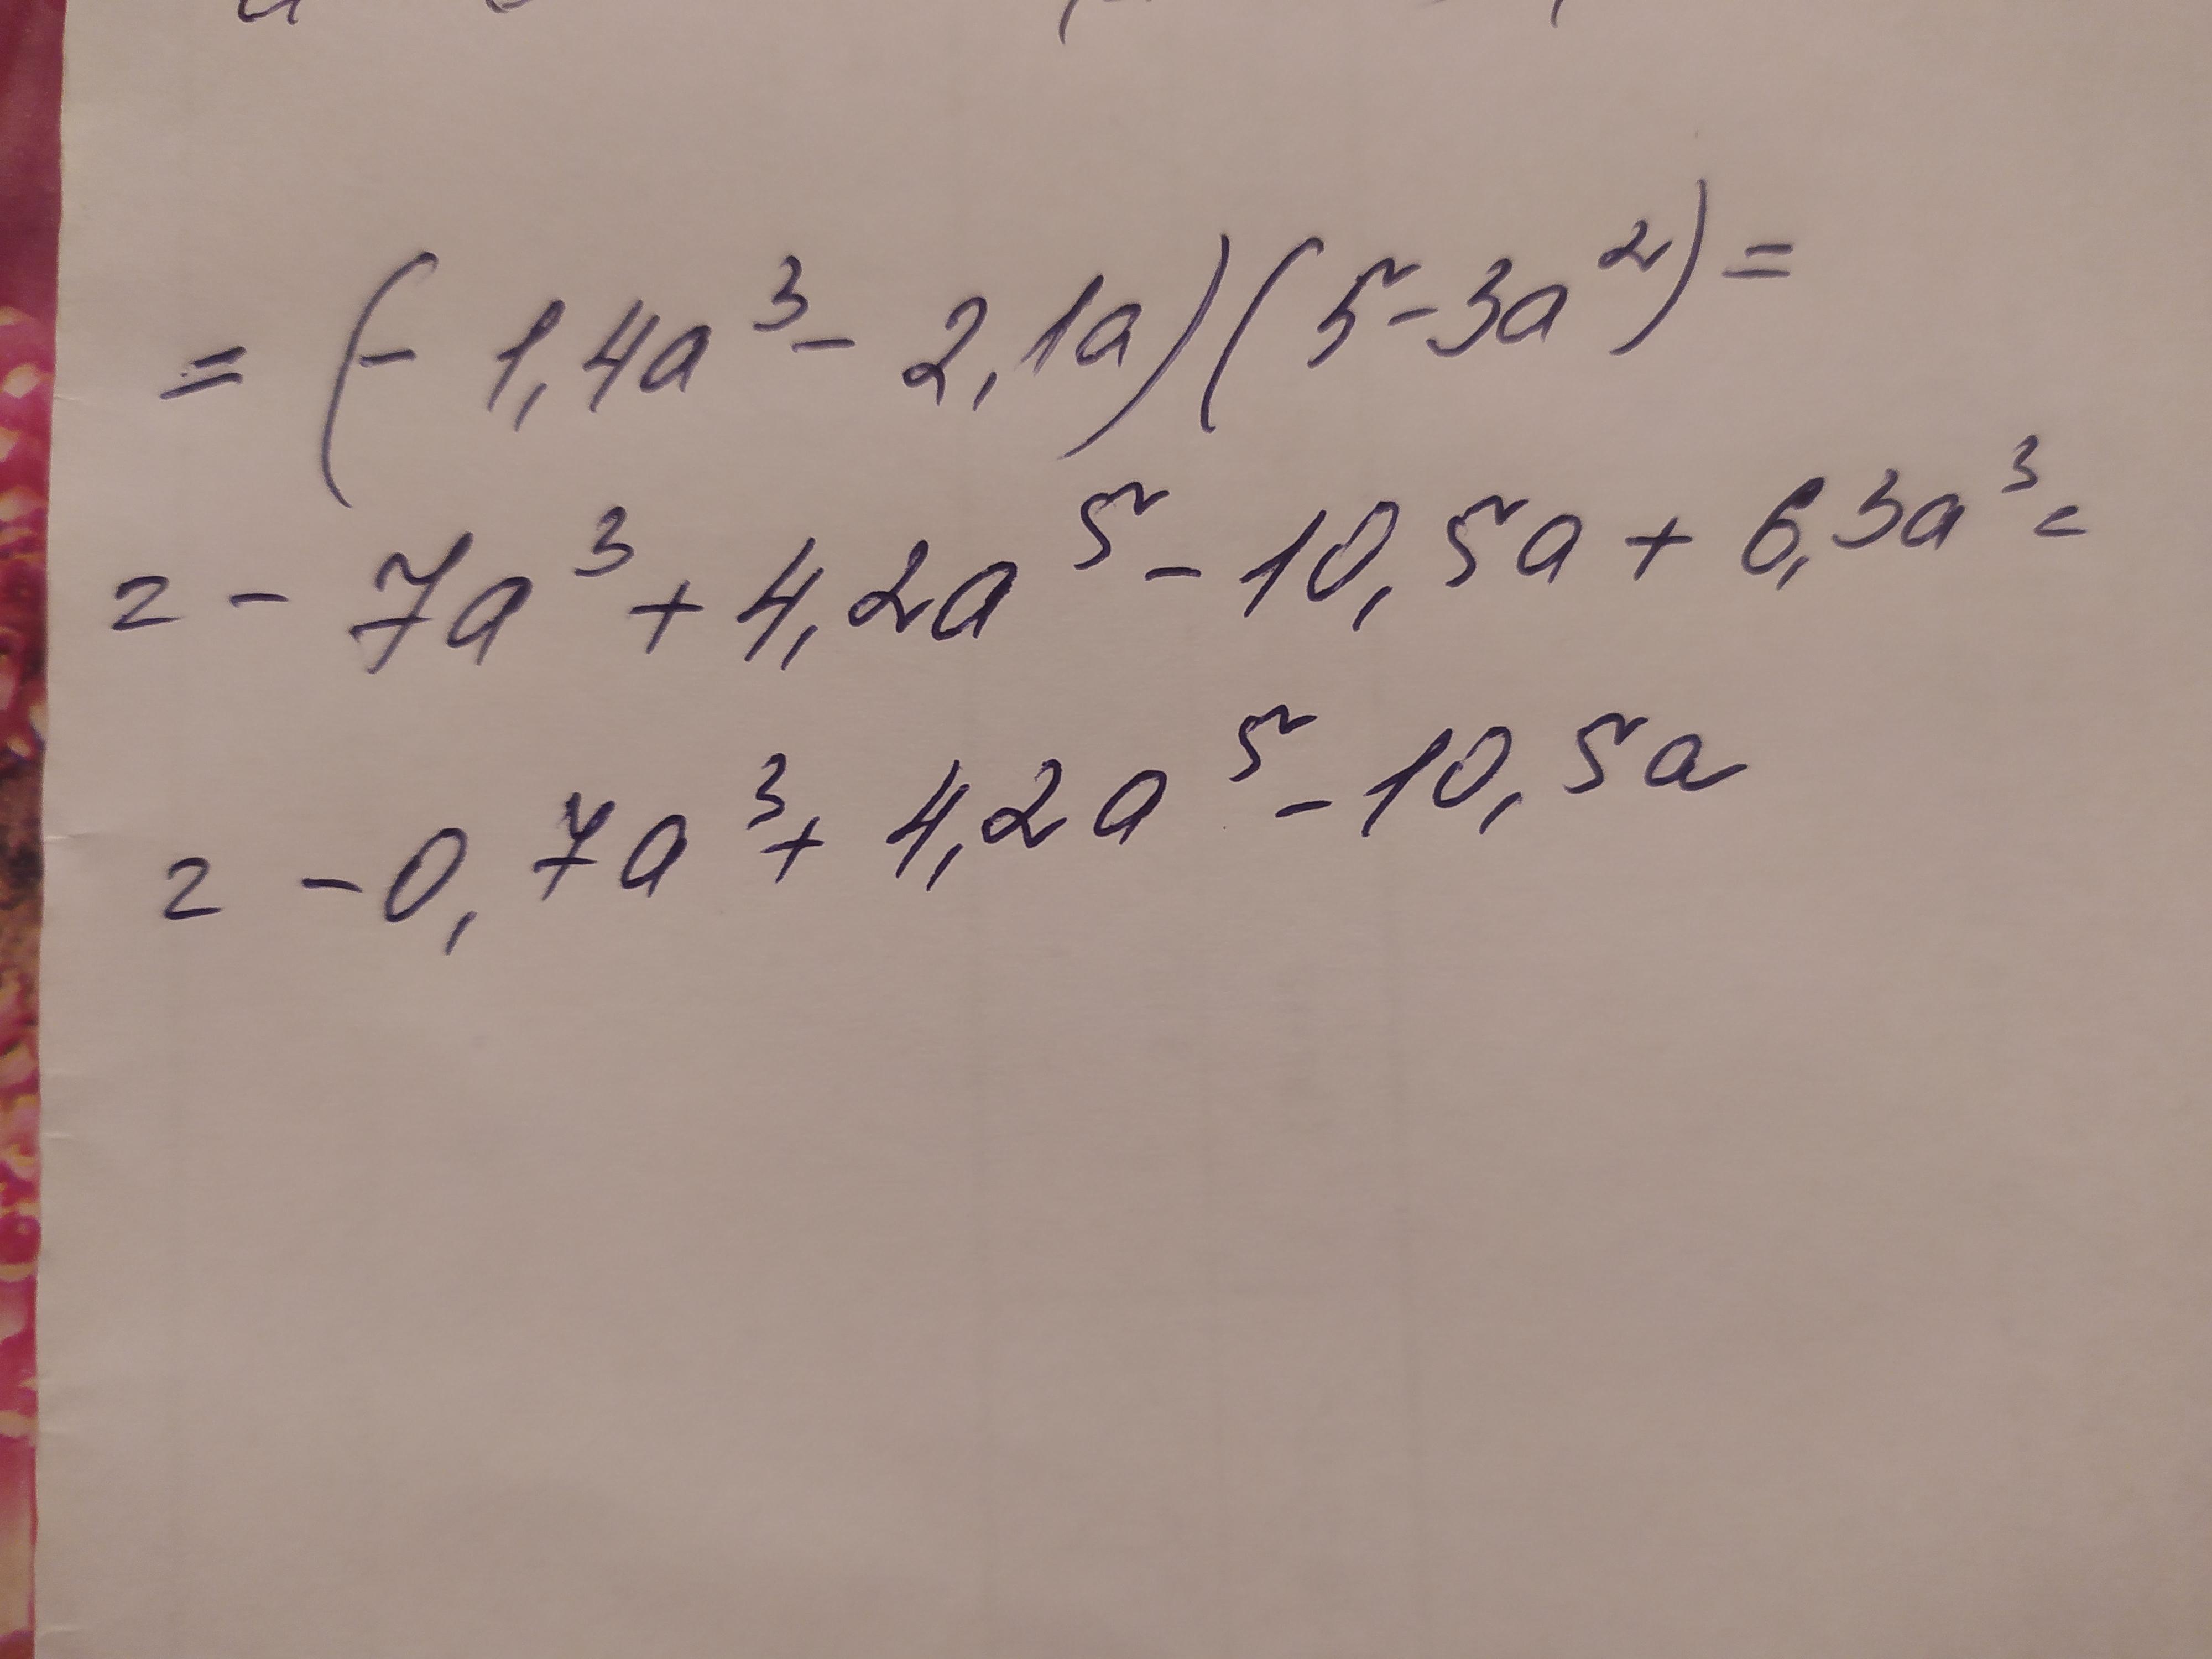 = (- 1,4a³ - 2,1a)(5-3a²) =
= - 7a³ + 4,2a⁵ - 10,5a + 6,3a³ =
= -0,7a³ + 4,2a⁵ - 10,5a